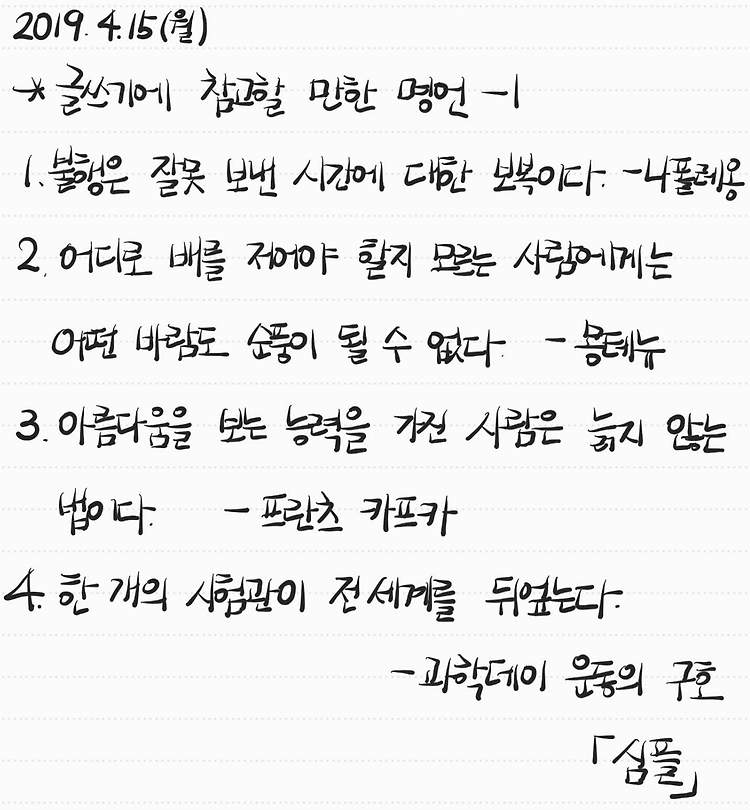 2019. 4.15(월)
* 글쓰기에 참고할 만한 명언 -1
1. 불행은 잘못 보낸 시간에 대한 보복이다. -나폴레옹
2. 어디로 배를 저어야 할지 모르는 사람에게는
어떤 바람도 순풍이 될 수 없다. - 몽테뉴
3. 아름다움을 보는 능력을 가진 사람은 늙지 않는
법이다. - 프란츠 카프카
4. 한 개의 시험관이 전 세계를 뒤엎는다.
- 과학데이 운동의 구호
「심플」